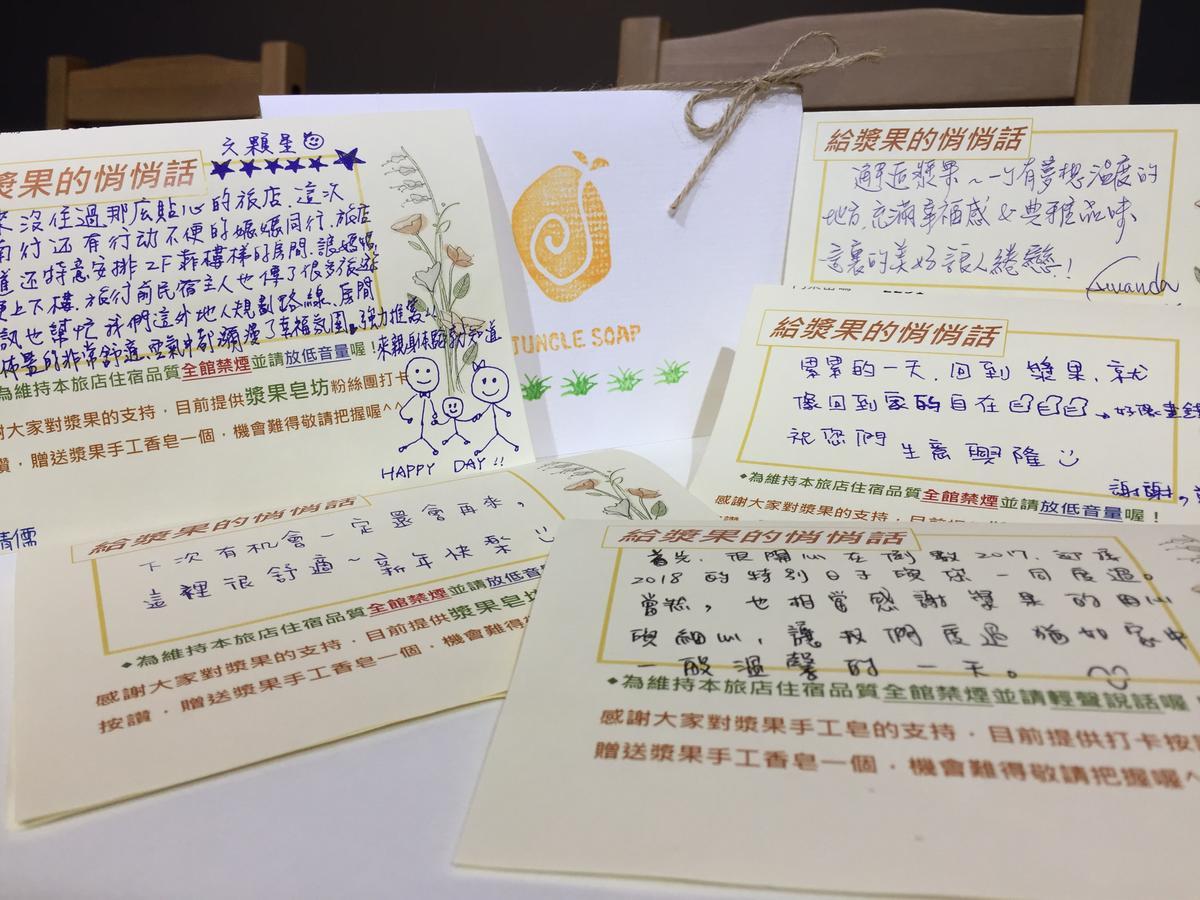 六顆星
漿果的悄悄話
來沒住過那広貼心的旅店.這次
南行还有行动不便的媽媽同行.旅店
道还特意安排2F
樓樣的房間.讓媽媽
更上下樓.旅行前民宿主人也傳了很多旅遊
訊也幫忙我們這外地人規劃路線、房間
佈置的非常舒適.空氣中都瀰漫了幸福氛圍.強力推薦
來親身体驗就知道
為維持本旅店住宿品質全館禁煙並請放低音量喔！
謝大家對漿果的支持，目前提供漿果皂坊粉絲團打卡
讚，贈送漿果手工香皂一個，機會難得敬請把握喔^^
HAPPY DAY!!
JUNGLE SOAP
給漿果的悄悄話
邂逅漿果~一個有夢想溫度的
地方.充滿幸福感&典雅品味、
這裏的美好讓人繾綣!
給漿果的悄悄話
累累的一天.回到漿果.就
像回到家的自在
好像畫錯
祝您們 生意興隆
謝謝,
◆為維持本旅店住宿品質全館禁煙並請放低音量喔！
感謝大家對漿果的支持，目前提供
給漿果的悄悄話
下次有机會一定還會再來,
這裡很舒適~新年快樂
◆為維持本旅店住宿品質全館禁煙並請放低音
感謝大家對漿果的支持，目前提供漿果皂坊
按讚，贈送漿果手工香皂一個，機會難得
給漿果的悄悄話
首先,很開心在倒數2017,迎接
2018的特別日子與您一同度過。
當然,也相當感謝漿果的用心
與細心,讓我們度過猶如家中
一般溫馨的一天。
◆為維持本旅店住宿品質全館禁煙並請輕聲說話喔
感謝大家對漿果手工皂的支持，目前提供打卡按
贈送漿果手工香皂一個，機會難得敬請把握喔^